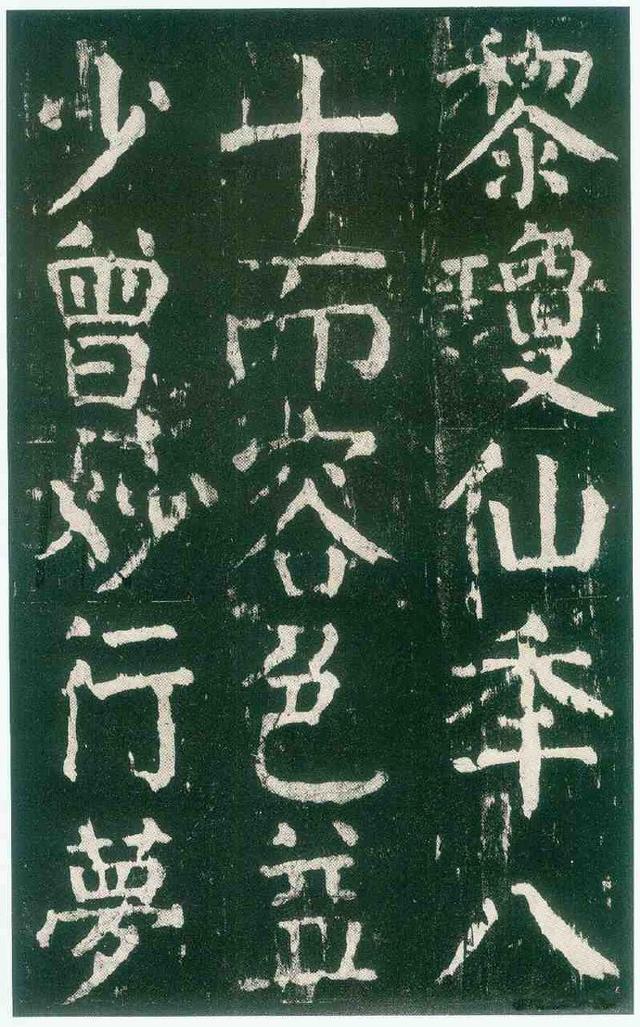 黎瓊仙秊八
十而容色益
少曾妙行夢